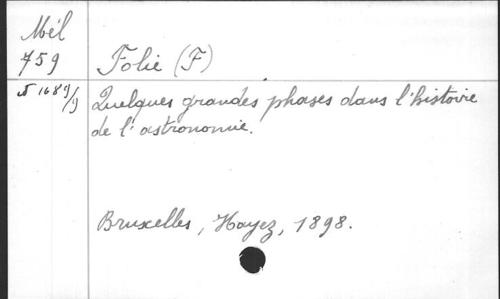 Mél
759
Folie (F)
1689/9
Quelques grandes phases dans l'histoire
de l'astronomie.
Bruxelles, Hayez, 1898.